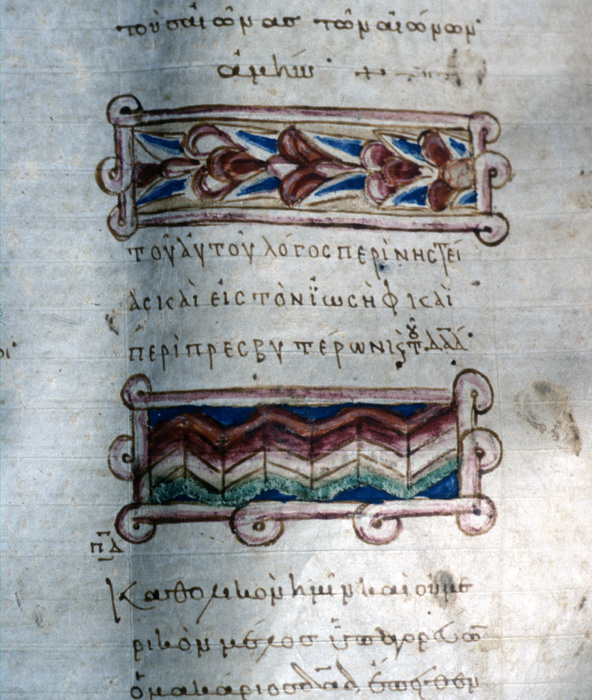 τοὺς αἰῶνας τῶν αἰώνων·
ἀμήν
τουαυτου λογος περι νηστεί
ας καὶ εἰς τὸν ϊωσὴφ καὶ
περι πρεσβυτέρων
πδ
Καθολικὸν ἡμῖν καὶ οὐμε
ρικὸν μέλος
ὁ μακάριος δᾱδ